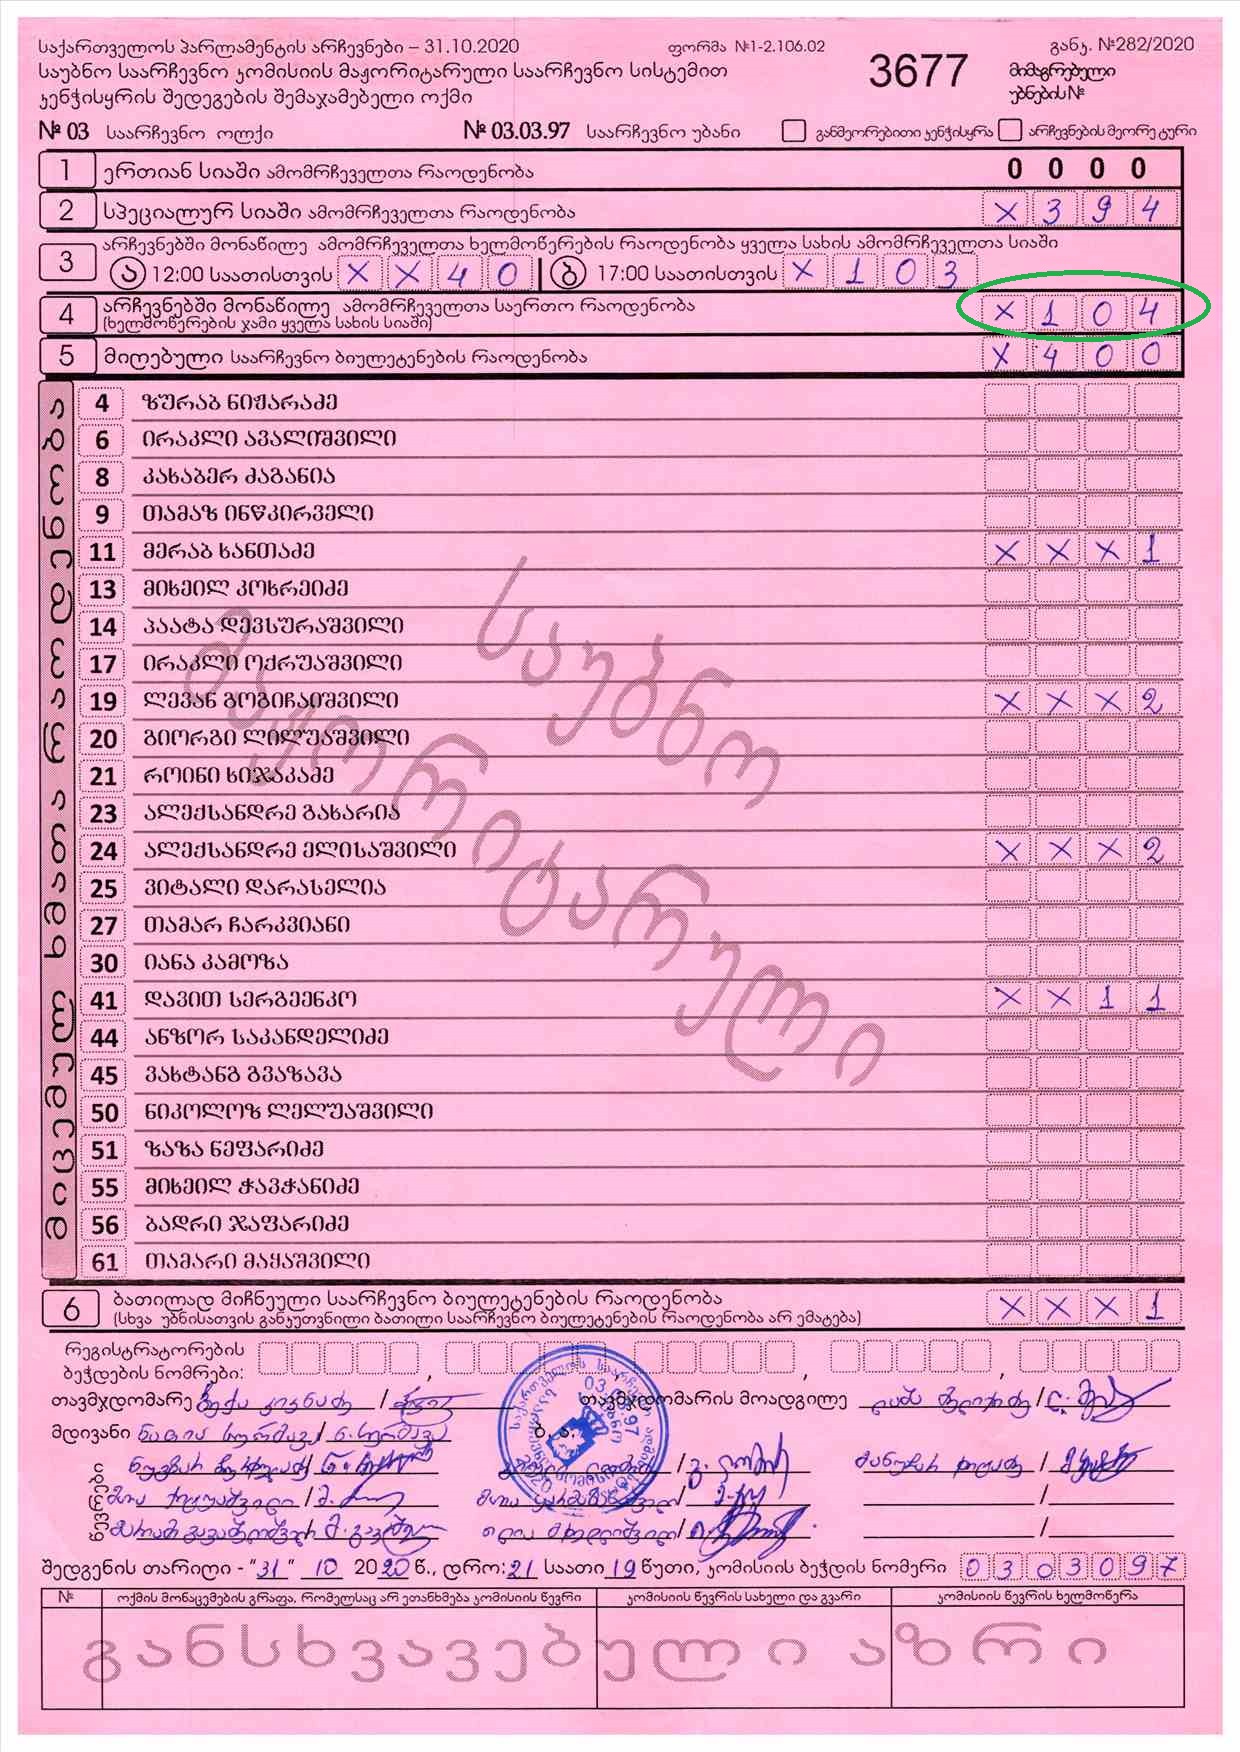 საქართველოს პარლამენტის არჩევნები – 31.10.2020 ფორმა №1-2.106.02 განკ. №282/2020
საუბნო საარჩევნო კომისიის მაჟორიტარული საარჩევნო სისტემით 3677 მიმაგრებული
კენჭისყრის შედეგების შემაჯამებელი ოქმი უბნების №
№ 03 საარჩევნო ოლქი № 03.03.97 საარჩევნო უბანი განმეორებითი კენჭისყრა არჩევნების მეორე ტური
1 ერთიან სიაში ამომრჩეველთა რაოდენობა 0 0 0 0
2 სპეციალურ სიაში ამომრჩეველთა რაოდენობა X 3 9 4
3 არჩევნებში მონაწილე ამომრჩეველთა ხელმოწერების რაოდენობა ყველა სახის ამომრჩეველთა სიაში
ა 12:00 საათისთვის X X 4 0 ბ 17:00 საათისთვის X 1 0 3
4 არჩევნებში მონაწილე ამომრჩეველთა საერთო რაოდენობა X 1 0 4
(ხელმოწერების ჯამი ყველა სახის სიაში)
5 მიღებული საარჩევნო ბიულეტენების რაოდენობა X 4 0 0
მიცემულ ხმათა რაოდენობა
4 ზურაბ ნიჟარაძე
6 ირაკლი ავალიშვილი
8 კახაბერ ძაგანია
9 თამაზ ინწკირველი
11 მერაბ ხანთაძე X X X 1
13 მიხეილ კოხრეიძე
14 პაატა დევსურაშვილი
17 ირაკლი ოქრუაშვილი
19 ლევან გოგიჩაიშვილი X X X 2
20 გიორგი ლილუაშვილი
21 როინი ხიჯაკაძე
23 ალექსანდრე გახარია
24 ალექსანდრე ელისაშვილი X X X 2
25 ვიტალი დარასელია
27 თამარ ჩარკვიანი
30 იანა კამოზა
41 დავით სერგეენკო X X 1 1
44 ანზორ საკანდელიძე
45 ვახტანგ გვაზავა
50 ნიკოლოზ ლელუაშვილი
51 ზაზა ნეფარიძე
55 მიხეილ ჭავჭანიძე
56 ბადრი ჯაფარიძე
61 თამარი მაყაშვილი
საუბნო
მაჟორიტარული
6 ბათილად მიჩნეული საარჩევნო ბიულეტენების რაოდენობა X X X 1
(სხვა უბნისათვის განკუთვნილი ბათილი საარჩევნო ბიულეტენების რაოდენობა არ ემატება)
რეგისტრატორების
ბეჭდების ნომრები:
თავმჯდომარე თავმჯდომარის მოადგილე
მდივანი ბ. ა.
წევრები
შედგენის თარიღი - "31" 10 2020 წ., დრო: 21 საათი 19 წუთი, კომისიის ბეჭდის ნომერი 0 3 0 3 0 9 7
№ ოქმის მონაცემების გრაფა, რომელსაც არ ეთანხმება კომისიის წევრი კომისიის წევრის სახელი და გვარი კომისიის წევრის ხელმოწერა
განსხვავებული აზრი